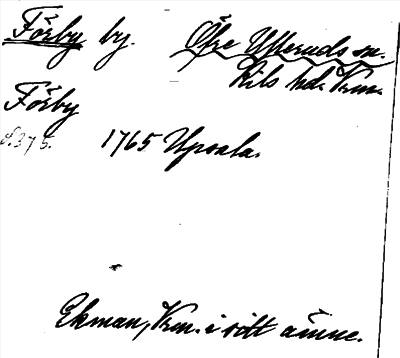 Förby by. Öfre Ulleruds sn.
Kils hd. Vrm.
Förby
s. 375. 1765 Upsala.
Ekman, Vrm. i sitt ämne.